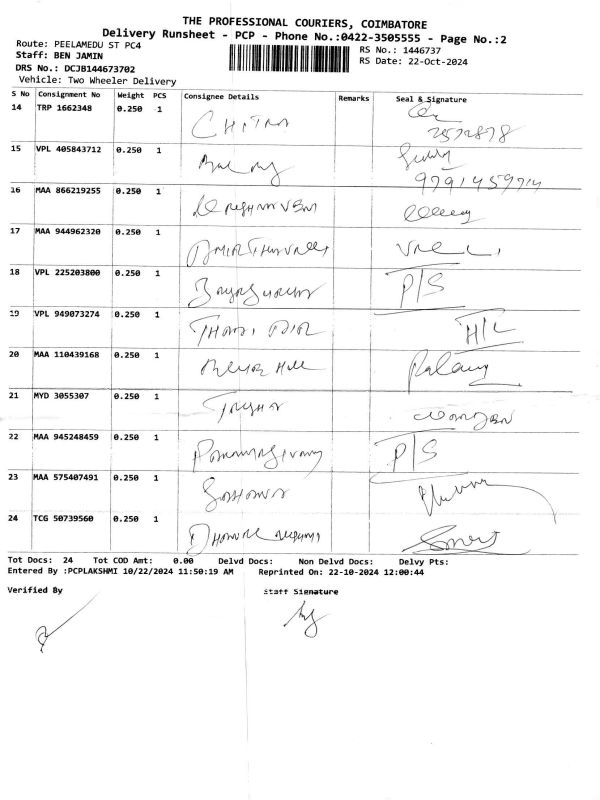 THE PROFESSIONAL COURIERS, COIMBATORE
Delivery Runsheet - PCP - Phone No.:0422-3505555 - Page No.:2
Route: PEELAMEDU ST PC4
Staff: BEN JAMIN
DRS No.: DCJB144673702
Vehicle: Two Wheeler Delivery
RS No.: 1446737
RS Date: 22-Oct-2024
S No Consignment No Weight PCS Consignee Details Remarks Seal & Signature
14 TRP 1662348 0.250 1 CHITRA
15 VPL 405843712 0.250 1
9791459914
16 MAA 866219255 0.250 1
17 MAA 944962320 0.250 1 AMIRTHAVALLI VALLI
18 VPL 225203800 0.250 1 P/S
19 VPL 949073274 0.250 1 H/L
20 MAA 110439168 0.250 1
21 MYD 3055307 0.250 1
22 MAA 945248459 0.250 1 P/S
23 MAA 575407491 0.250 1
24 TCG 50739560 0.250 1
Tot Docs: 24 Tot COD Amt: 0.00 Delvd Docs: Non Delvd Docs: Delvy Pts:
Entered By :PCPLAKSHMI 10/22/2024 11:50:19 AM Reprinted On: 22-10-2024 12:00:44
Verified By Staff Signature